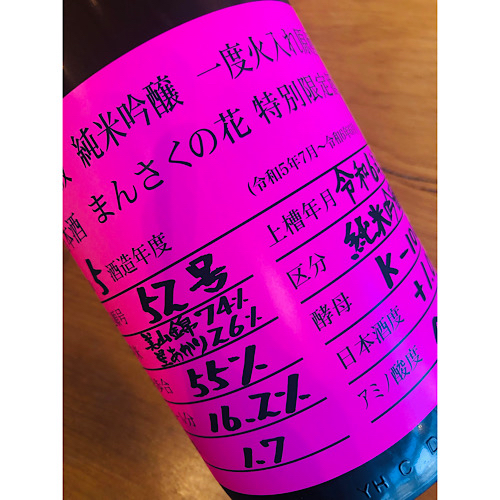 純米吟醸 一度火入れ原
酒 まんさくの花 特別限定
(令和5年7月～令和
5 酒造年度
上槽年月 令和6
号 52号
区分 純米吟
美山錦74%
星あかり26%
酵母 K-10
55%
日本酒度 +1.
分 16.2%
アミノ酸度
1.7
YH C D